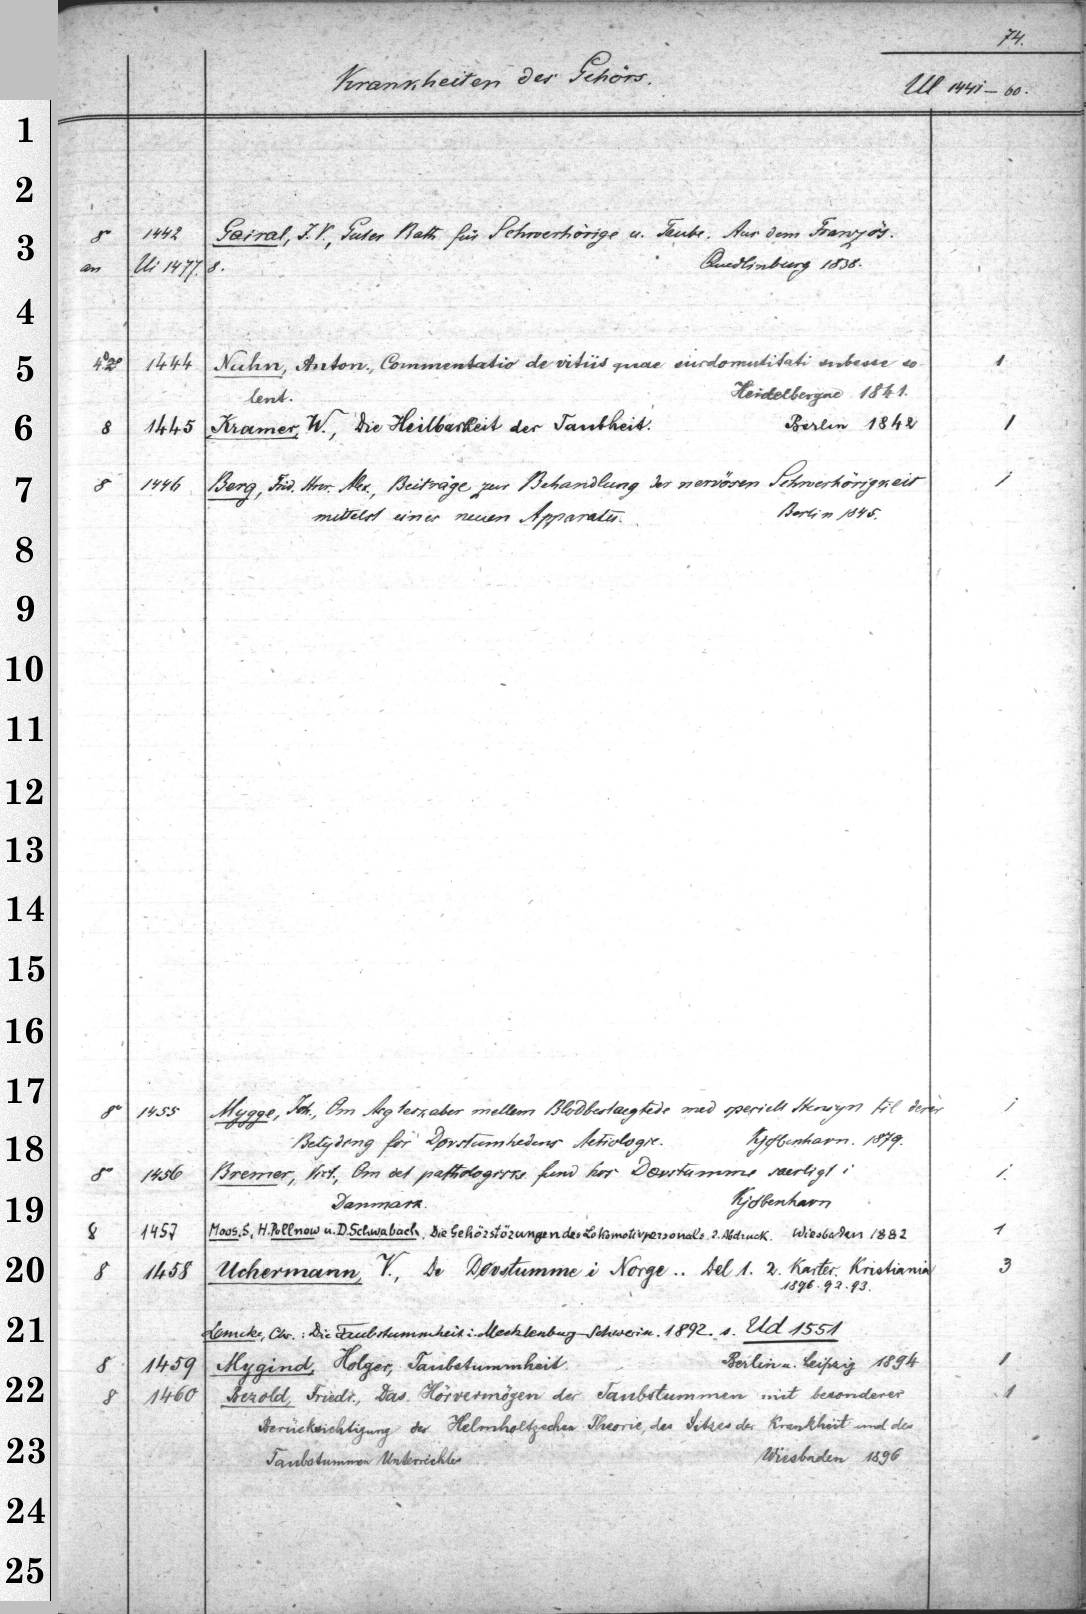 74.
Krankheiten des Gehörs.
Ul 1441-60.
1
2
3
4
5
6
7
8
9
10
11
12
13
14
15
16
17
18
19
20
21
22
23
24
25
8° 1442 Gairal, J. V., Guter Rath für Schwerhörige u. Taube. Aus dem Französ.
an Ui 1477. 8. Quedlinburg 1838.
4° 1444 Nuhn, Anton., Commentatio de vitiis quae surdomutitati subesse so- 1
lent. Heidelbergae 1841.
8 1445 Kramer, W., Die Heilbarkeit der Taubheit. Berlin 1842 1
8 1446 Berg, Frid. Alex., Beiträge zur Behandlung der nervösen Schwerhörigkeit 1
mittelst eines neuen Apparates. Berlin 1845.
8° 1455 Mygge, Joh., Om Aegteskaber mellem Blodbeslaegtede med specielt Hensyn til deres 1
Betydning för Dovstumhedens Aetiologie. Kjøbenhavn. 1879.
8° 1456 Bremer, Vict., Om det pathologiske fund hos Dovstumme saerligt i 1.
Danmark. Kjøbenhavn
8 1457 Moos, S., H. Pollnow u. D. Schwabach, Die Gehörstörungen des Lokomotivpersonals. 2. Abdruck. Wiesbaden 1882 1
8 1458 Uchermann, V., De Døvstumme i Norge .. Del 1. 2. Karter. Kristiania 3
1896. 92. 93.
Lemcke, Chr.: Die Taubstummheit i. Mecklenburg-Schwerin. 1892. s. Ud 1551
8 1459 Mygind, Holger, Taubstummheit. Berlin u. Leipzig 1894 1
8 1460 Bezold, Friedr., Das Hörvermögen der Taubstummen mit besonderer 1
Berücksichtigung der Helmholtzschen Theorie, des Sitzes der Krankheit und des
Taubstummen Unterrichtes Wiesbaden 1896